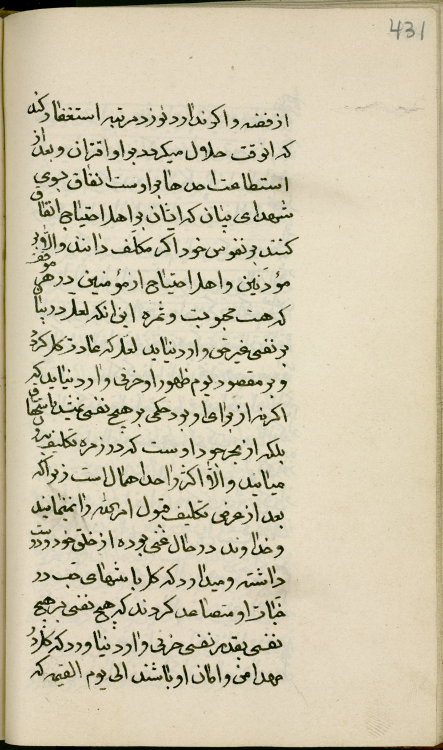 431
از فضه و اگر ندارد نوزده مرتبه استغفار کند
که انوقت حلال میگردد بر او اقتران و بعد از
استطاعت احدها بر اوست انفاق بسوی
شهدای بیان که ایشان بر اهل احتیاج انفاق
کنند بر نفوس خود اگر مکلف دانند والا بر
مؤذنین و اهل احتیاج از مؤمنین در هر موقف
که هست محبوبست و ثمره این انکه لعل در بیان
بر نفسی غیر حق وارد نیاید لعل که عادت کل گردد
و بر مقصود یوم ظهور او حزنی وارد نیاید که
اگر نه از برای او بود حکمی بر هیچ نفسی نمیشد باشتها
بلکه از بحر جود اوست که در زمره تکلیف
میایند والا اکثر را حد اهمال است زیرا که
بعد از عرض تکلیف قبول امر الله را نمینمایند
و خداوند در حال غنی بوده از خلق خود و دوست
داشته و میدارد که کل با منتهای حب در
جنات او متصاعد گردند که هیچ نفسی بر هیچ
نفسی بقدر نفسی حزنی وارد نیاورد که کل در
مهد امن و امان او باشند الی یوم القیمه که